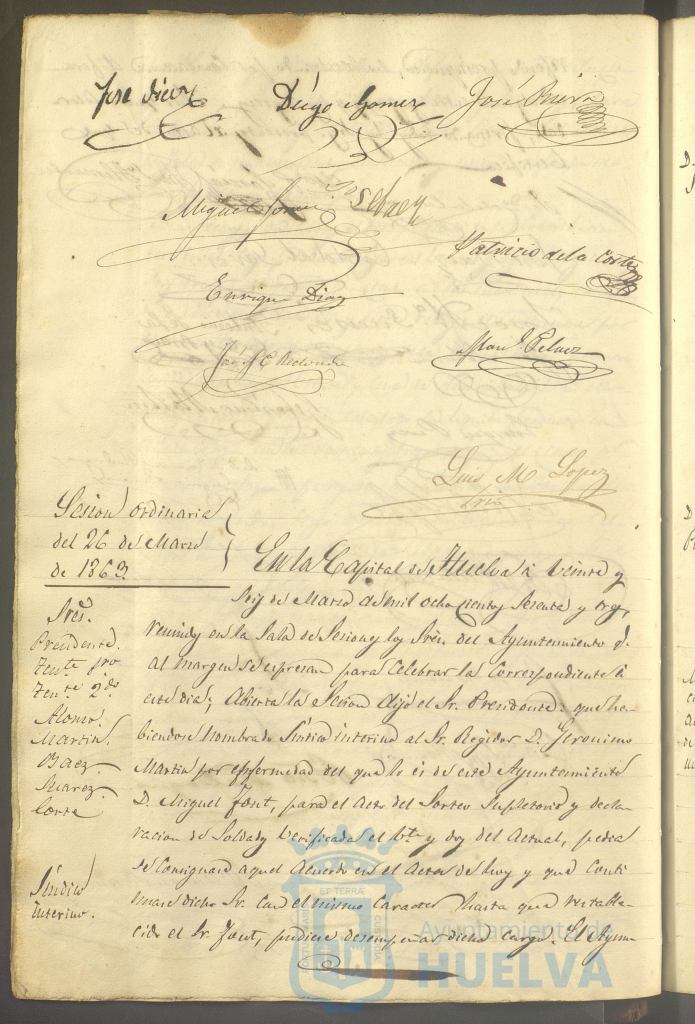 José Diez Diego Gomez José
Miguel Selaez
Patricio de la Corte
Enrique Diaz
José Redondo
Man.l Pelaez
Luis M Lopez
Srio
Sesion ordinaria
del 26 de Marzo
de 1863.
Sres.
Presidente.
Tente. pro
Tente 2do
Alonso.
Martin.
Baez.
Suarez.
Corte
Síndico
interino.
En la Capital de Huelva á veinte y
seis de Marzo de mil ocho cientos sesenta y tres,
reunidos en la Sala de Sesiones los Sres del Ayuntamiento q.
al margen se espresan para celebrar la correspondiente á
este dia; Abierta la Sesion dijo el Sr. Presidente: que ha-
biendose nombrado Síndico interino al Sr. Regidor D. Geronimo
Martin por enfermedad del que lo es de este Ayuntamiento
D. Miguel Font, para el acto del Sorteo Supletorio y decla-
racion de Soldados verificada el vte. y dos del actual, pedia
se consignara aquel acuerdo en el Acta de hoy y que conti-
nuase dicho Sr. con el mismo caracter hasta que restable-
cido el Sr. Font, pudiese desempeñar dicho cargo. El Ayun-
Ayuntamiento de
HUELVA